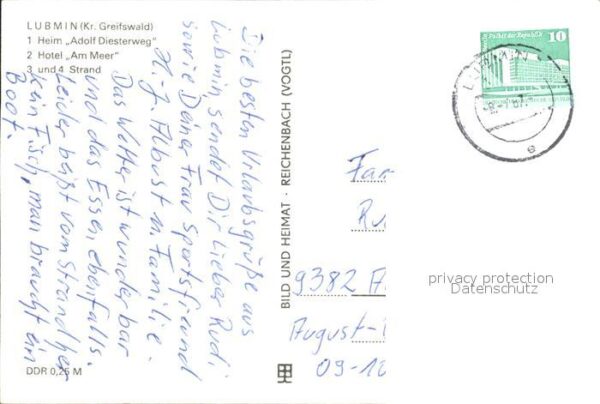 LUBMIN (Kr. Greifswald)
1 Heim „Adolf Diesterweg"
2 Hotel „Am Meer"
3 und 4 Strand
Die besten Urlaubsgrüße aus
Lubmin, sendet Dir lieber Rudi
sowie Deiner Frau Sportsfreund
H.-J. Albust m. Familie.
Das Wetter ist wunderbar
und das Essen ebenfalls.
Leider beißt vom Strand her
kein Fisch, man braucht ein
Boot.
DDR 0,25 M
BILD UND HEIMAT · REICHENBACH (VOGTL)
Palast der Republik
10
Fam
Ru
9382 A
August-
09-10
privacy protection
Datenschutz